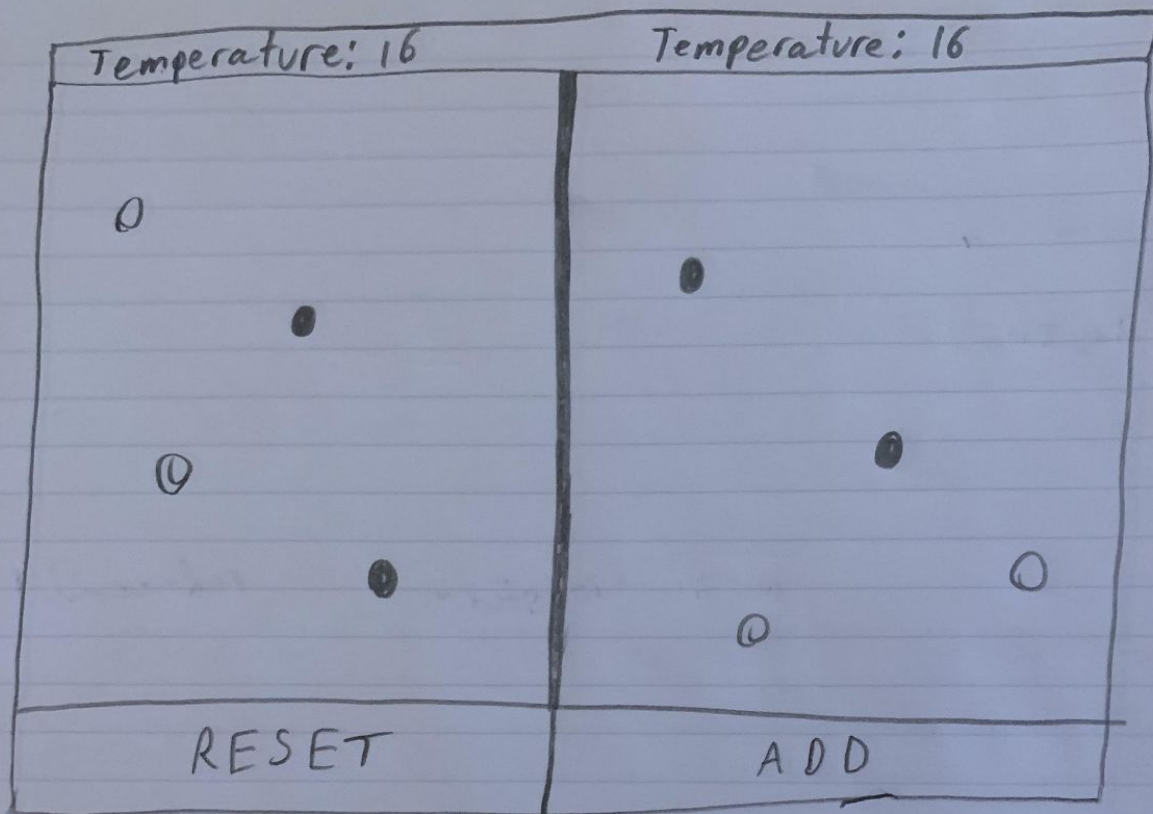 Temperature: 16 Temperature: 16
RESET ADD